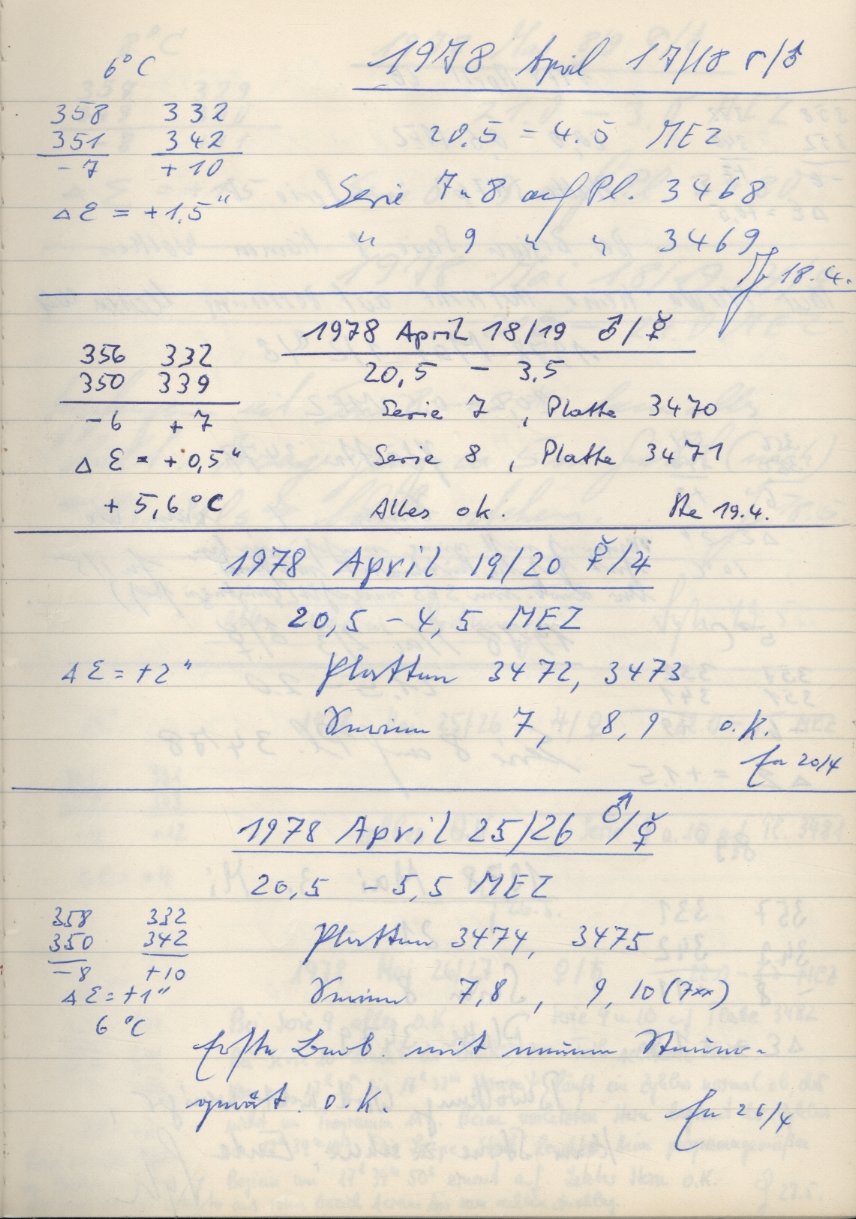 6°C
1978 April 17/18 ☾/♂
358 332
351 342
-7 +10
20.5 – 4.5 MEZ
Δε = +1,5"
Serie 7 u 8 auf Pl. 3468
" 9 " " 3469
18.4.
1978 April 18/19 ♂/☿
356 332
350 339
-6 +7
20,5 – 3,5
Serie 7, Platte 3470
Δε = +0,5"
Serie 8, Platte 3471
+5,6°C
Alles ok. 19.4.
1978 April 19/20 ☿/♃
20,5 – 4,5 MEZ
Δε = +2"
Platten 3472, 3473
Serien 7, 8, 9 o.K.
20/4
1978 April 25/26 ♂/☿
20,5 – 5,5 MEZ
358 332
350 342
-8 +10
Platten 3474, 3475
Δε = +1"
Serien 7,8, 9, 10 (7xx)
6°C
Erste Beob. mit neuem Steuer-
gerät. o.K.
26/4